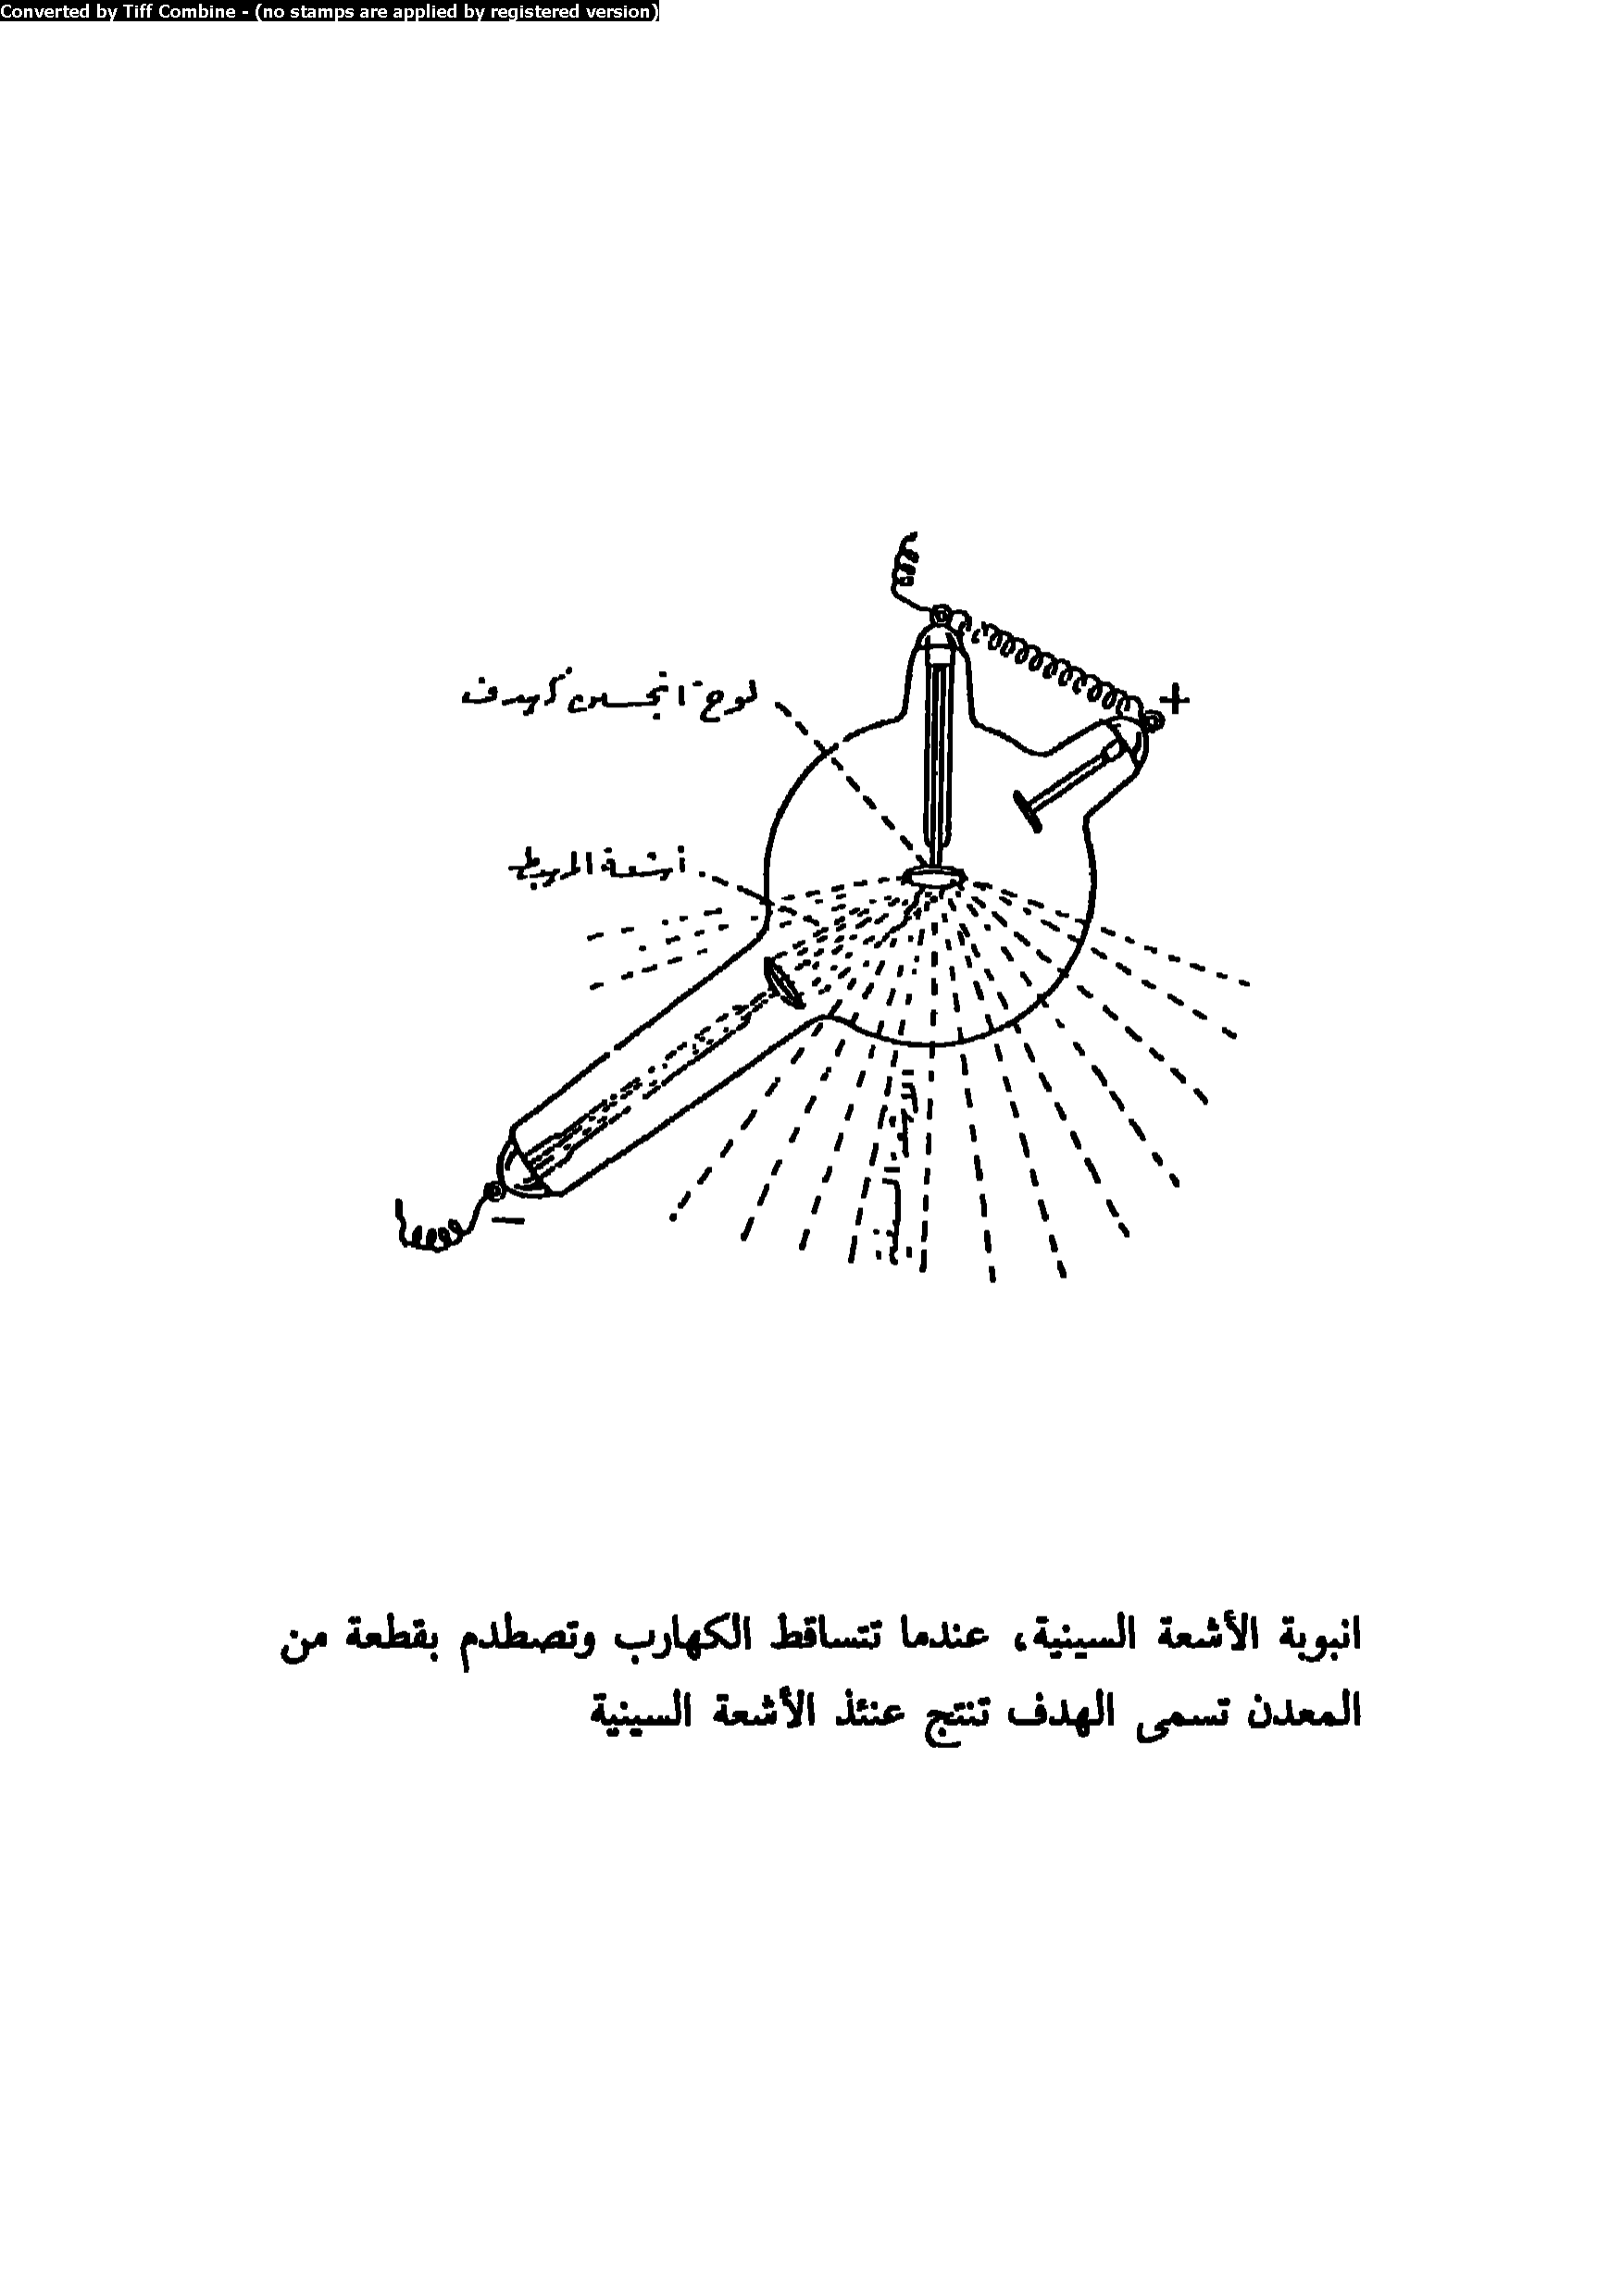 Converted by Tiff Combine - (no stamps are applied by registered version)
+
أشعة المهبط
—
انبوبة الأشعة السينية، عندما تتساقط الكهارب وتصطدم بقطعة من
المعدن تسمى الهدف تنتج عنئذ الأشعة السينية